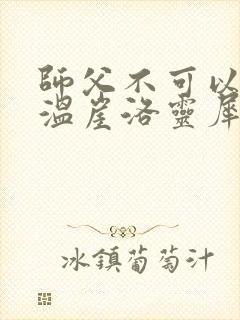 師父不可以
溫崖洛靈犀
冰鎮葡萄汁